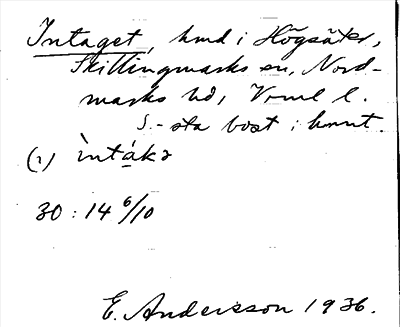 Intaget, hmd i Högsäter,
Skillingmarks sn, Nord-
marks hd, Vrml l.
S.-sta bost i hmnt.
(1) ìntákə
30 : 14 6/10
E. Andersson 1936.